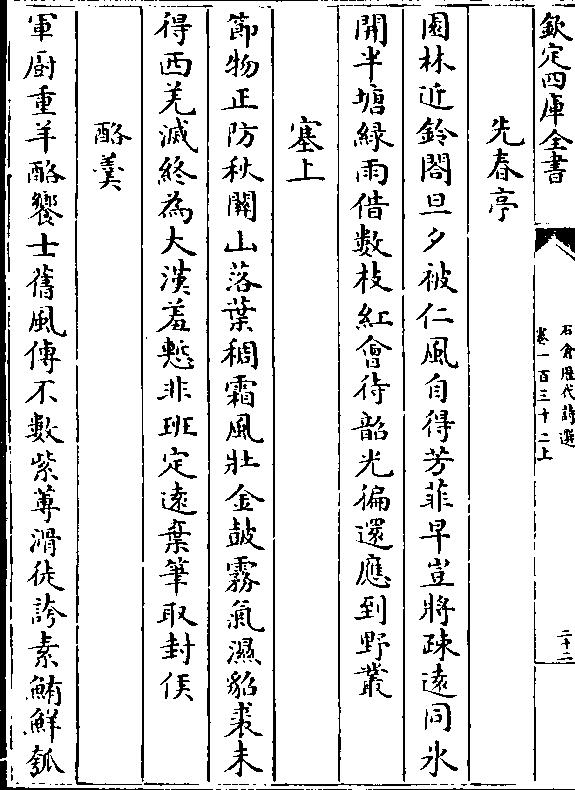 欽定四庫全書
石倉歷代詩選
卷一百三十二上
二十二
先春亭
園林近鈴閣旦夕被仁風自得芳菲早豈將疎遠同氷
開半塘緑雨借數枝紅會待韶光徧還應到野叢
塞上
節物正防秋關山落葉稠霜風壯金鼓霧氣濕貂裘未
得西羌滅終為大漢羞慙非班定遠棄筆取封侯
酪羹
軍廚重羊酪饗士舊風傳不數紫蓴滑徒誇素鮪鮮瓠